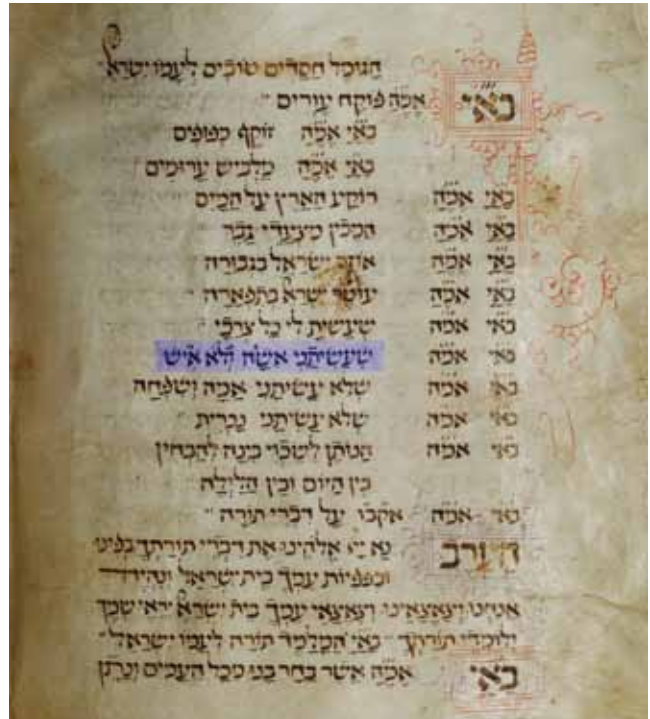 הגומל חסדים טובים לעמו ישרא
באי אמה פוקח עורים
באי אמה זוקף כפופים
באי אמה מלביש ערומים
באי אמה רוקע הארץ על המים
באי אמה המכין מצעדי גבר
באי אמה אוזר ישראל בגבורה
באי אמה עוטר ישרא בתפארה
באי אמה שעשית לי כל צרכי
באי אמה שעשיתני אשה ולא איש
באי אמה שלא עשיתני אמה ושפחה
באי אמה שלא עשיתני נכרית
באי אמה הנותן לשכוי בינה להבחין
בין היום ובין הלילה
באי אמה אקבו על דברי תורה
והערב נא ייי אלהינו את דברי תורתך בפינו
ובפפיות עמך בית ישראל ונהיה
אנחנו וצאצאינו וצאצאי עמך בית ישרא יראי שמך
ולומדי תורתך באי המלמד תורה לעמו ישראל
באי אמה אשר בחר בנו מכל העמים ונתן